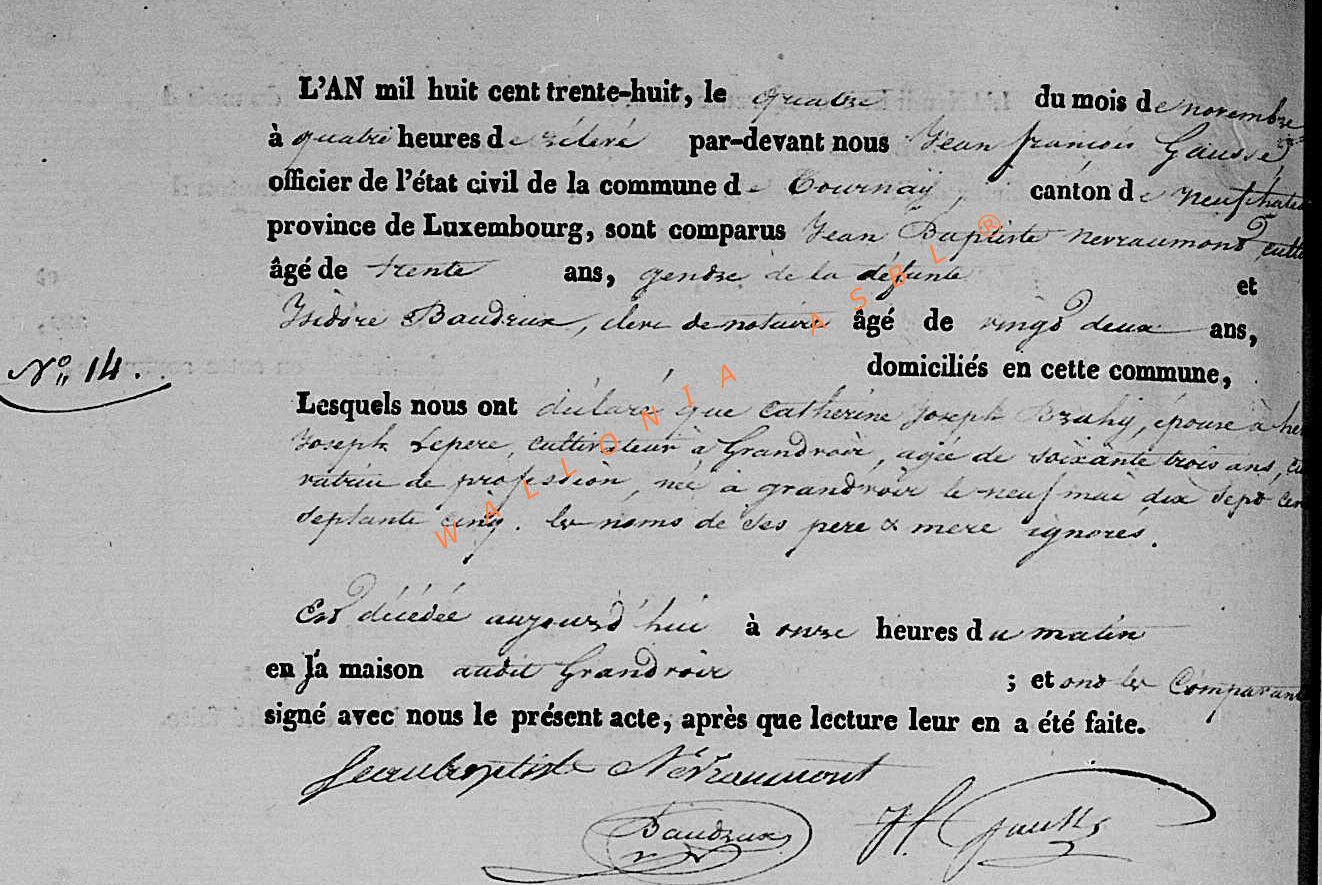 L'AN mil huit cent trente-huit, le quatre du mois de novembre
à quatre heures de rélévé par-devant nous Jean françois Gaussé
officier de l'état civil de la commune de Tournaÿ, canton de Neufchatea
province de Luxembourg, sont comparus Jean Baptiste nevraumont cult
âgé de trente ans, gendre de la défunte et
Isidore Baudrux, clerc de notaire âgé de vingt deux ans,
domiciliés en cette commune,
N° 14.
Lesquels nous ont déclaré que Catherine Joseph Brahy, épouse à
Joseph Lepere, cultivateur à Grandvoir, agée de soixante trois ans, cu
vatrice de profession, née à grandvoir le neuf mai dix sept cen
septante cinq. les noms de ses pere & mere ignorés.
Est décédée aujourd'hui à onze heures du matin
en la maison audit Grandvoir ; et ont les Comparans
signé avec nous le présent acte, après que lecture leur en a été faite.
Jean baptiste Nevraumont
Baudrux
WALLONIA ASBL ®